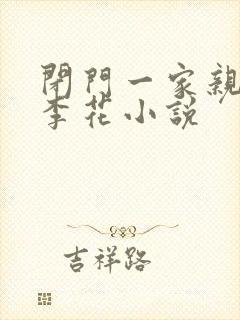 閉門一家親
李花小説
吉祥路